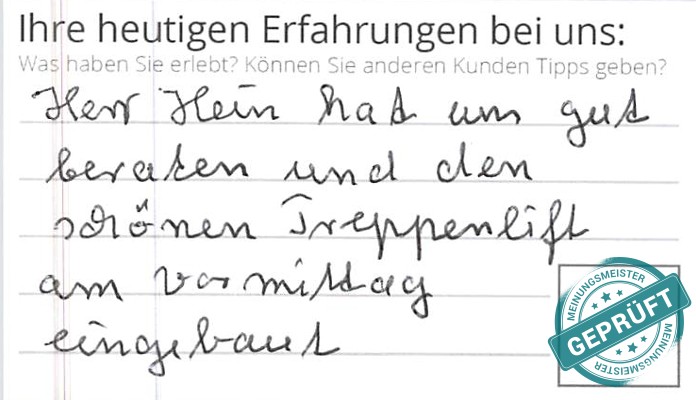 Ihre heutigen Erfahrungen bei uns:
Was haben Sie erlebt? Können Sie anderen Kunden Tipps geben?
Herr Hein hat uns gut
beraten und den
schönen Treppenlift
am vormittag
eingebaut
MEINUNGSMEISTER
GEPRÜFT
MEINUNGSMEISTER